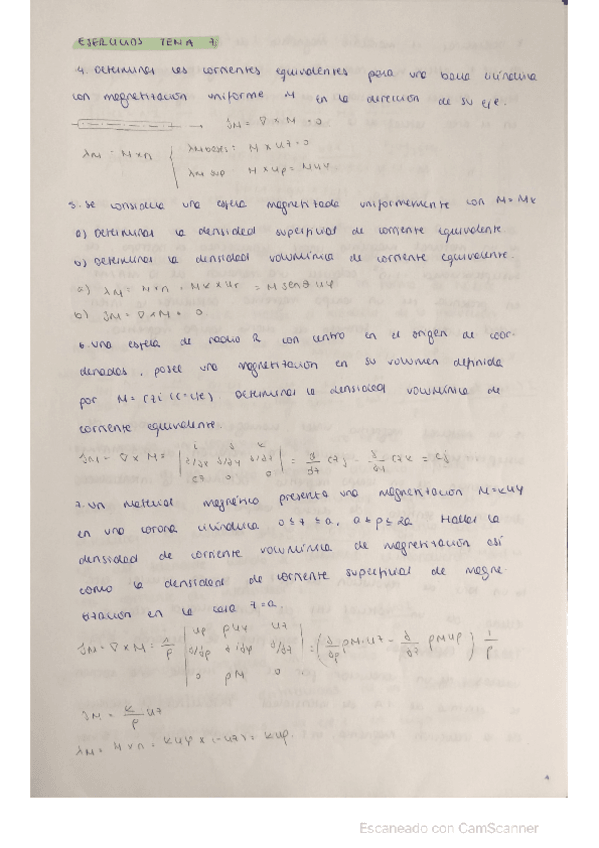 EJERCICIOS TEMA 7.
4. Determinar las corrientes equivalentes para una barra cilíndrica
con magnetización uniforme M en la dirección de su eje.
JM = ∇ × M = 0
λM = M×n { λM bases: M × uz = 0
λM sup M × uρ = M uφ.
5. Se considera una esfera magnetizada uniformemente con M = Mk
a) Determinar la densidad superficial de corriente equivalente.
b) Determinar la densidad volumínica de corriente equivalente.
a) λM = M×n = Mk × ur = M senθ uφ
b) JM = ∇ × M = 0.
6. Una esfera de radio R con centro en el origen de coor-
denadas, posee una magnetización en su volumen definida
por M = cz i (c = cte) Determinar la densidad volumínica de
corriente equivalente.
JM = ∇ × M = | i j k d/dx d/dy d/dz cz 0 0 | = d/dz cz j - d/dy cz k = cj
7. Un material magnético presenta una magnetización M = k uφ
en una corona cilíndrica 0 ≤ z ≤ a, a ≤ ρ ≤ 2a. Hallar la
densidad de corriente volumínica de magnetización así
como la densidad de corriente superficial de magne-
tización en la cara z = a.
JM = ∇ × M = 1/ρ | uρ ρuφ uz d/dρ d/dφ d/dz 0 ρM 0 | = (d/dρ ρM uz - d/dz ρM uρ) 1/ρ
JM = k/ρ uz
λM = M × n = k uφ × (-uz) = k uρ.
Escaneado con CamScanner